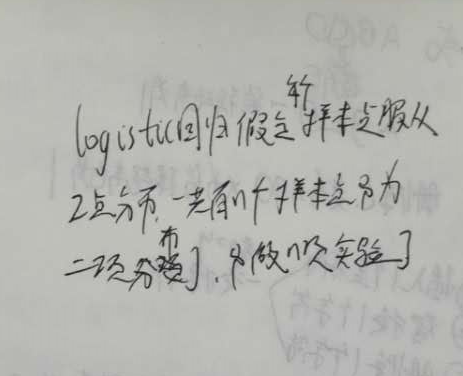 logistic回归假定每个样本点服从
2点分布,一共有n个样本点即为
二项分布],即做n次实验]